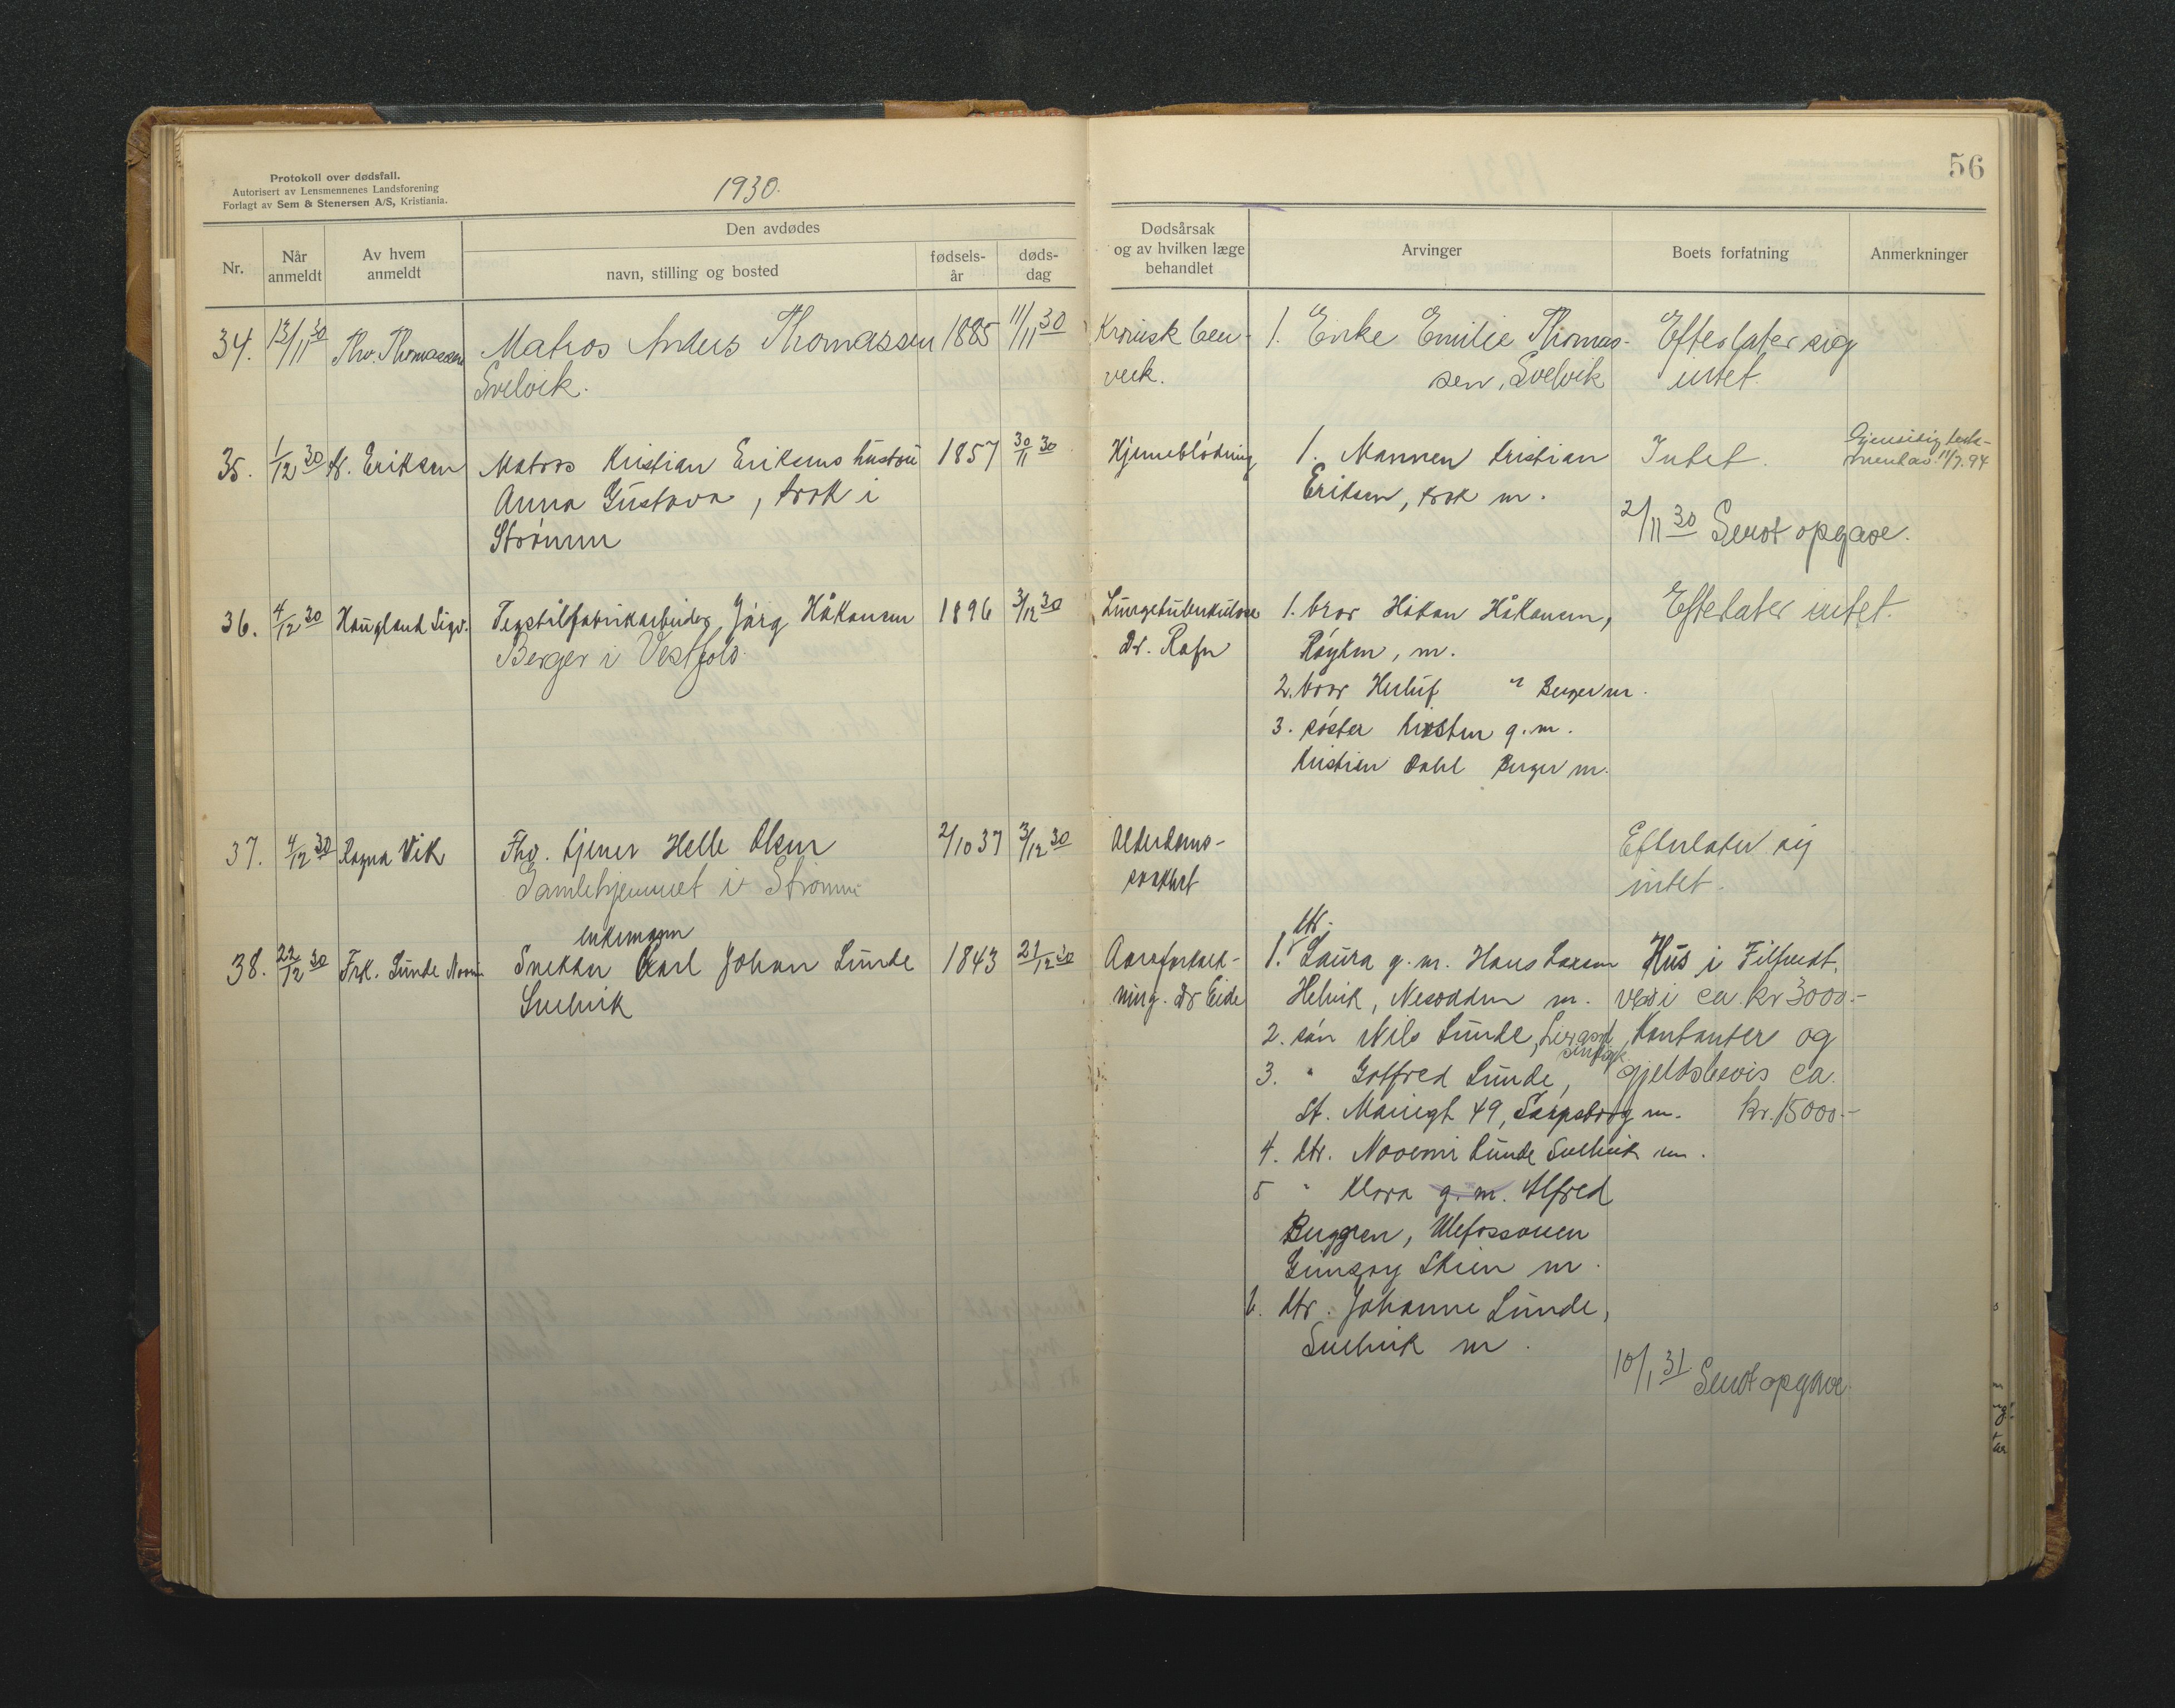 Protokoll over dødsfall.
Autorisert av Lensmennenes Landsforening
Forlagt av Sem & Stenersen A/S, Kristiania.
1930.
56
Nr.
Når anmeldt
Av hvem anmeldt
Den avdødes
navn, stilling og bosted
fødsels-år
døds-dag
Dødsårsak og av hvilken læge behandlet
Arvinger
Boets forfatning
Anmerkninger
34. 13/11 30 Thv. Thomassen Matros Anders Thomassen 1885 11/11 30 Kronisk ben- 1. Enke Emilie Thomas- Efterlater sig
Svelvik. sen, Svelvik intet.
35. 1/12 30 K. Eriksen Matros Kristian Eriksens hustru 1857 30/11 30 Hjerneblødning 1. Mannen Kristian Intet. Gjensidig testa-
mentav. 11/7.94
Anna Gustava, krok i Eriksen, krok m.
Strømm 2/11 30 Sendt opgave.
36. 4/12 30 Haugland Sigv. Textilfabrikarbeider Jørg Håkansen 1896 3/12 30 Lungetuberkulose 1. bror Håkan Håkansen, Efterlater intet.
Berger i Vestfold. Dr. Rafn Røyken, m.
2. bror Herluf " Berger m.
3. søster Kirsten g.m.
Kristian Dahl Berger m.
37. 4/12 30 Ragna Vik Fhv. tjener Helle Olsen 2/10 37 3/12 30 Alderdoms- Efterlater sig
Gamlehjemmet i Strømm svakhet intet.
enkemann dtr.
38. 22/12 30 Frk. Lunde Noomi Snekker Karl Johan Lunde 1843 21/12 30 Aareforkalk- 1. Laura g.m. Hans Laxesen Hus i Filtvedt,
Svelvik ning. Dr Eide Helvik, Nesodden m. verdi ca. kr 3000.-
2. søn Nils Lunde, Kontanter og
3. " Gotfred Lunde, gjeldsbevis ca.
St. Mariegt 49, Sarpsborg m. kr. 15000.-
4. dtr. Nooemi Lunde Svelvik m.
5 " Klara g.m. Alfred
Berggren, Ulefossveien
Gimsøy Skien m.
6. dtr. Johanne Lunde,
Svelvik m.
10/1 31 Sendt opgave.